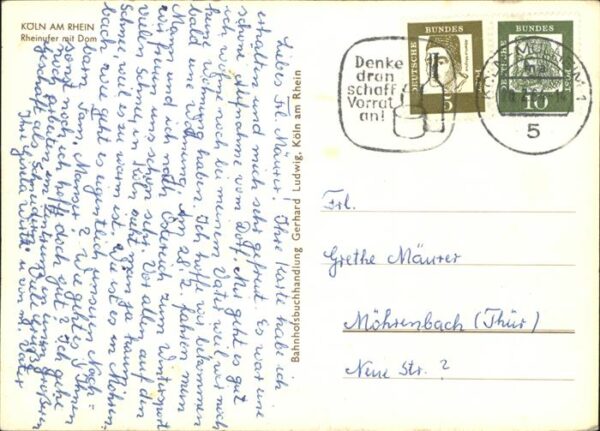 KÖLN AM RHEIN
Rheinufer mit Dom
Liebes Frl. Mäurer! Ihre Karte habe ich
erhalten und mich sehr gefreut. Es war eine
schöne Aufnahme vom Dorf. Mir geht es gut
ich wohne noch bei meinem Vater weil wir noch
keine Wohnung haben. Ich hoffe wir bekommen
bald eine Wohnung. Am 28.12. fahren mein
Mann und ich nach Österreich zum Wintersport
wir freuen uns schon sehr. Vor allem auf den
vielen Schnee, in Köln sieht man ja kaum
Schnee, weil es zu warm ist. Wie ist es in Möhren-
bach, wie geht es eigentlich unseren Nach-
barn Fam. Manser? Wie geht es Ihnen
sonst noch, ich hoffe doch gut? Ich gehe
noch arbeiten in einem großen
Geschäft als Schneiderin. Viele Grüße
Ihre Gisela u. von m. Vater
Bahnhofsbuchhandlung Gerhard Ludwig, Köln am Rhein
Denke
dran
schaff
Vorrat
an!
DEUTSCHE BUNDESPOST
5
DEUTSCHE BUNDESPOST
10
5
Frl.
Grethe Mäurer
Möhrenbach (Thür)
Neue Str. ?